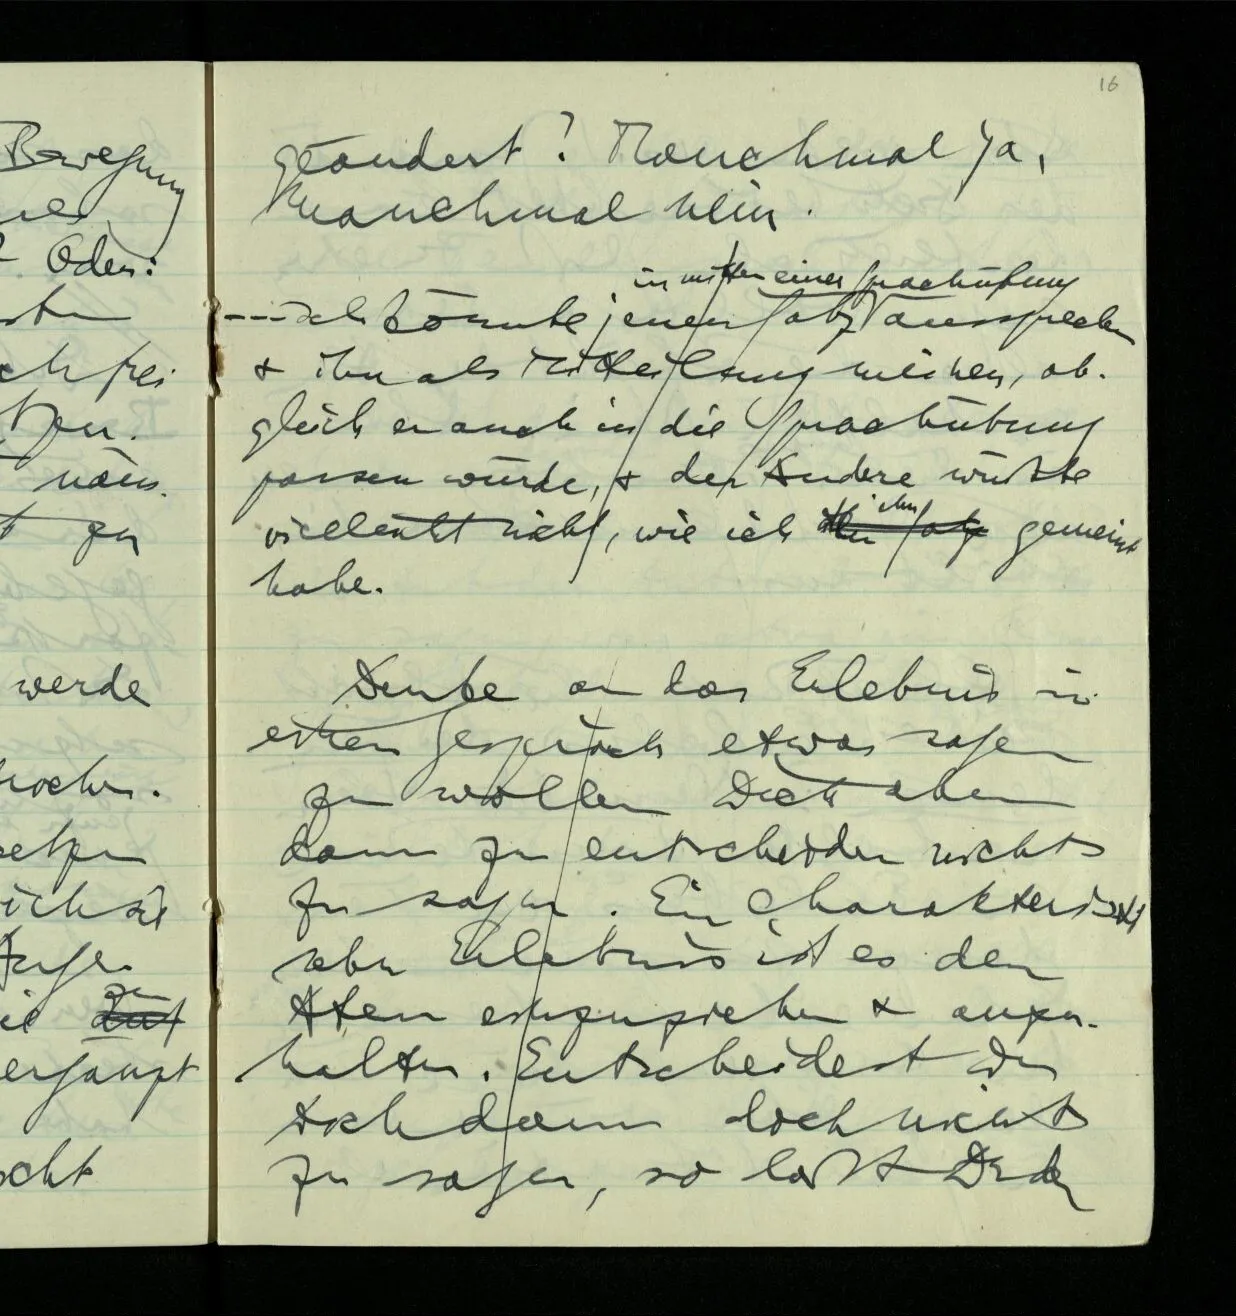 16
Bewegung
Oder:
werde
geändert? Manchmal ja,
manchmal nein.
inmitten einer Sprachübung
--- Ich könnte jenen Satz aussprechen
& ihn als Mitteilung meinen, ob-
gleich er auch in die Sprachübung
passen würde, & der Andere wüßte
vielleicht nicht, wie ich ihn gemeint
habe.
Denke an das Erlebnis in
einem Gespräch etwas sagen
zu wollen Dich aber
dann zu entscheiden nichts
zu sagen. Ein charakteristi
sches Erlebnis ist es den
Atem einzuziehen & anzu-
halten. Entscheidest du
dich dann doch nichts
zu sagen, so läßt Du den